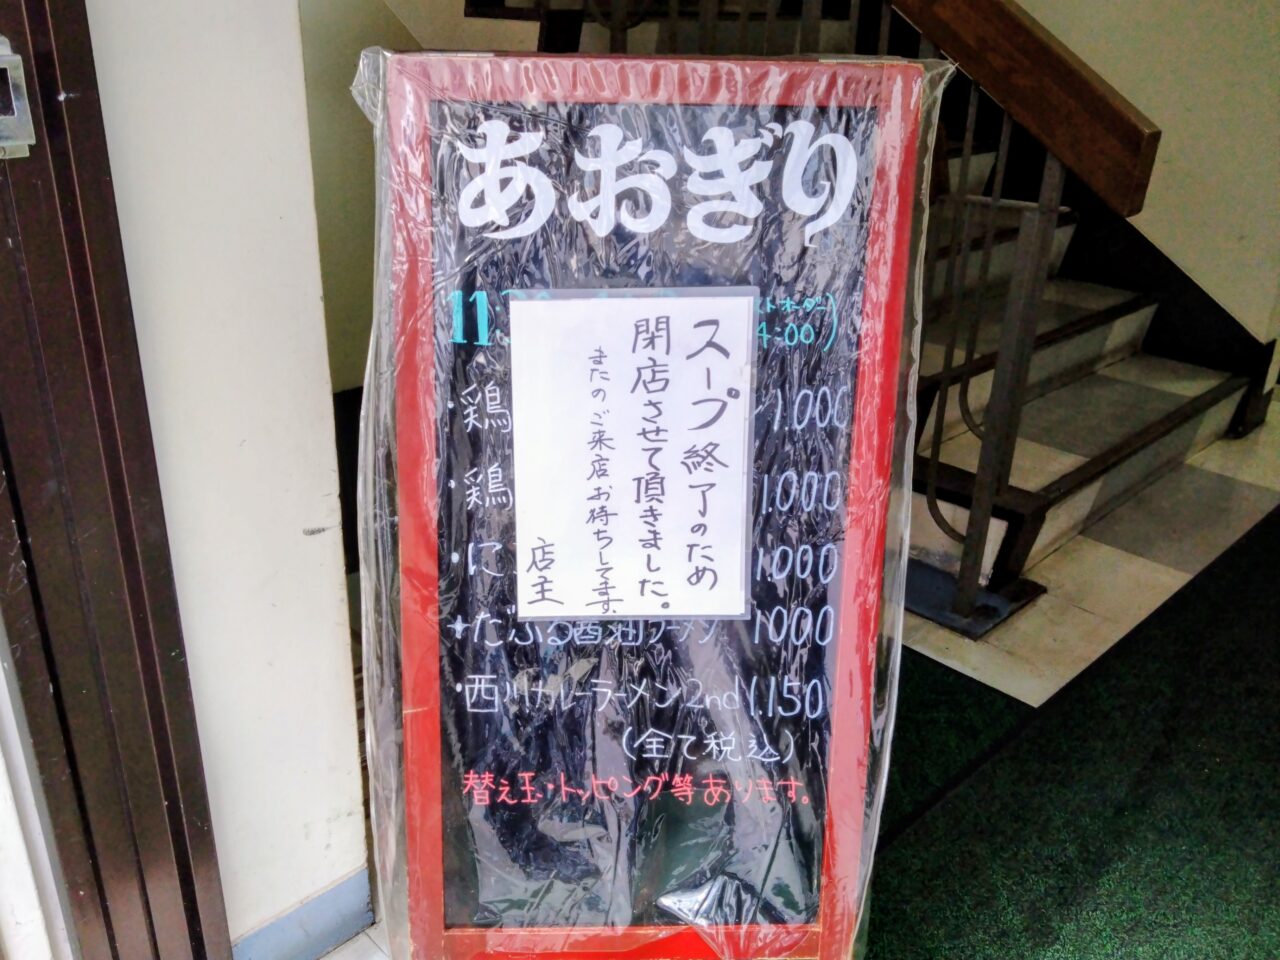 あおぎり
11
ストオーダー
4:00)
スープ終了のため
閉店させて頂きました。
またのご来店お待ちしてます。
店主
・鶏 1.000
・鶏 1.000
・に 1.000
+だぶる醤油ラーメン 1000
・西川カレーラーメン2nd 1.150
(全て税込)
替え玉・トッピング等あります。